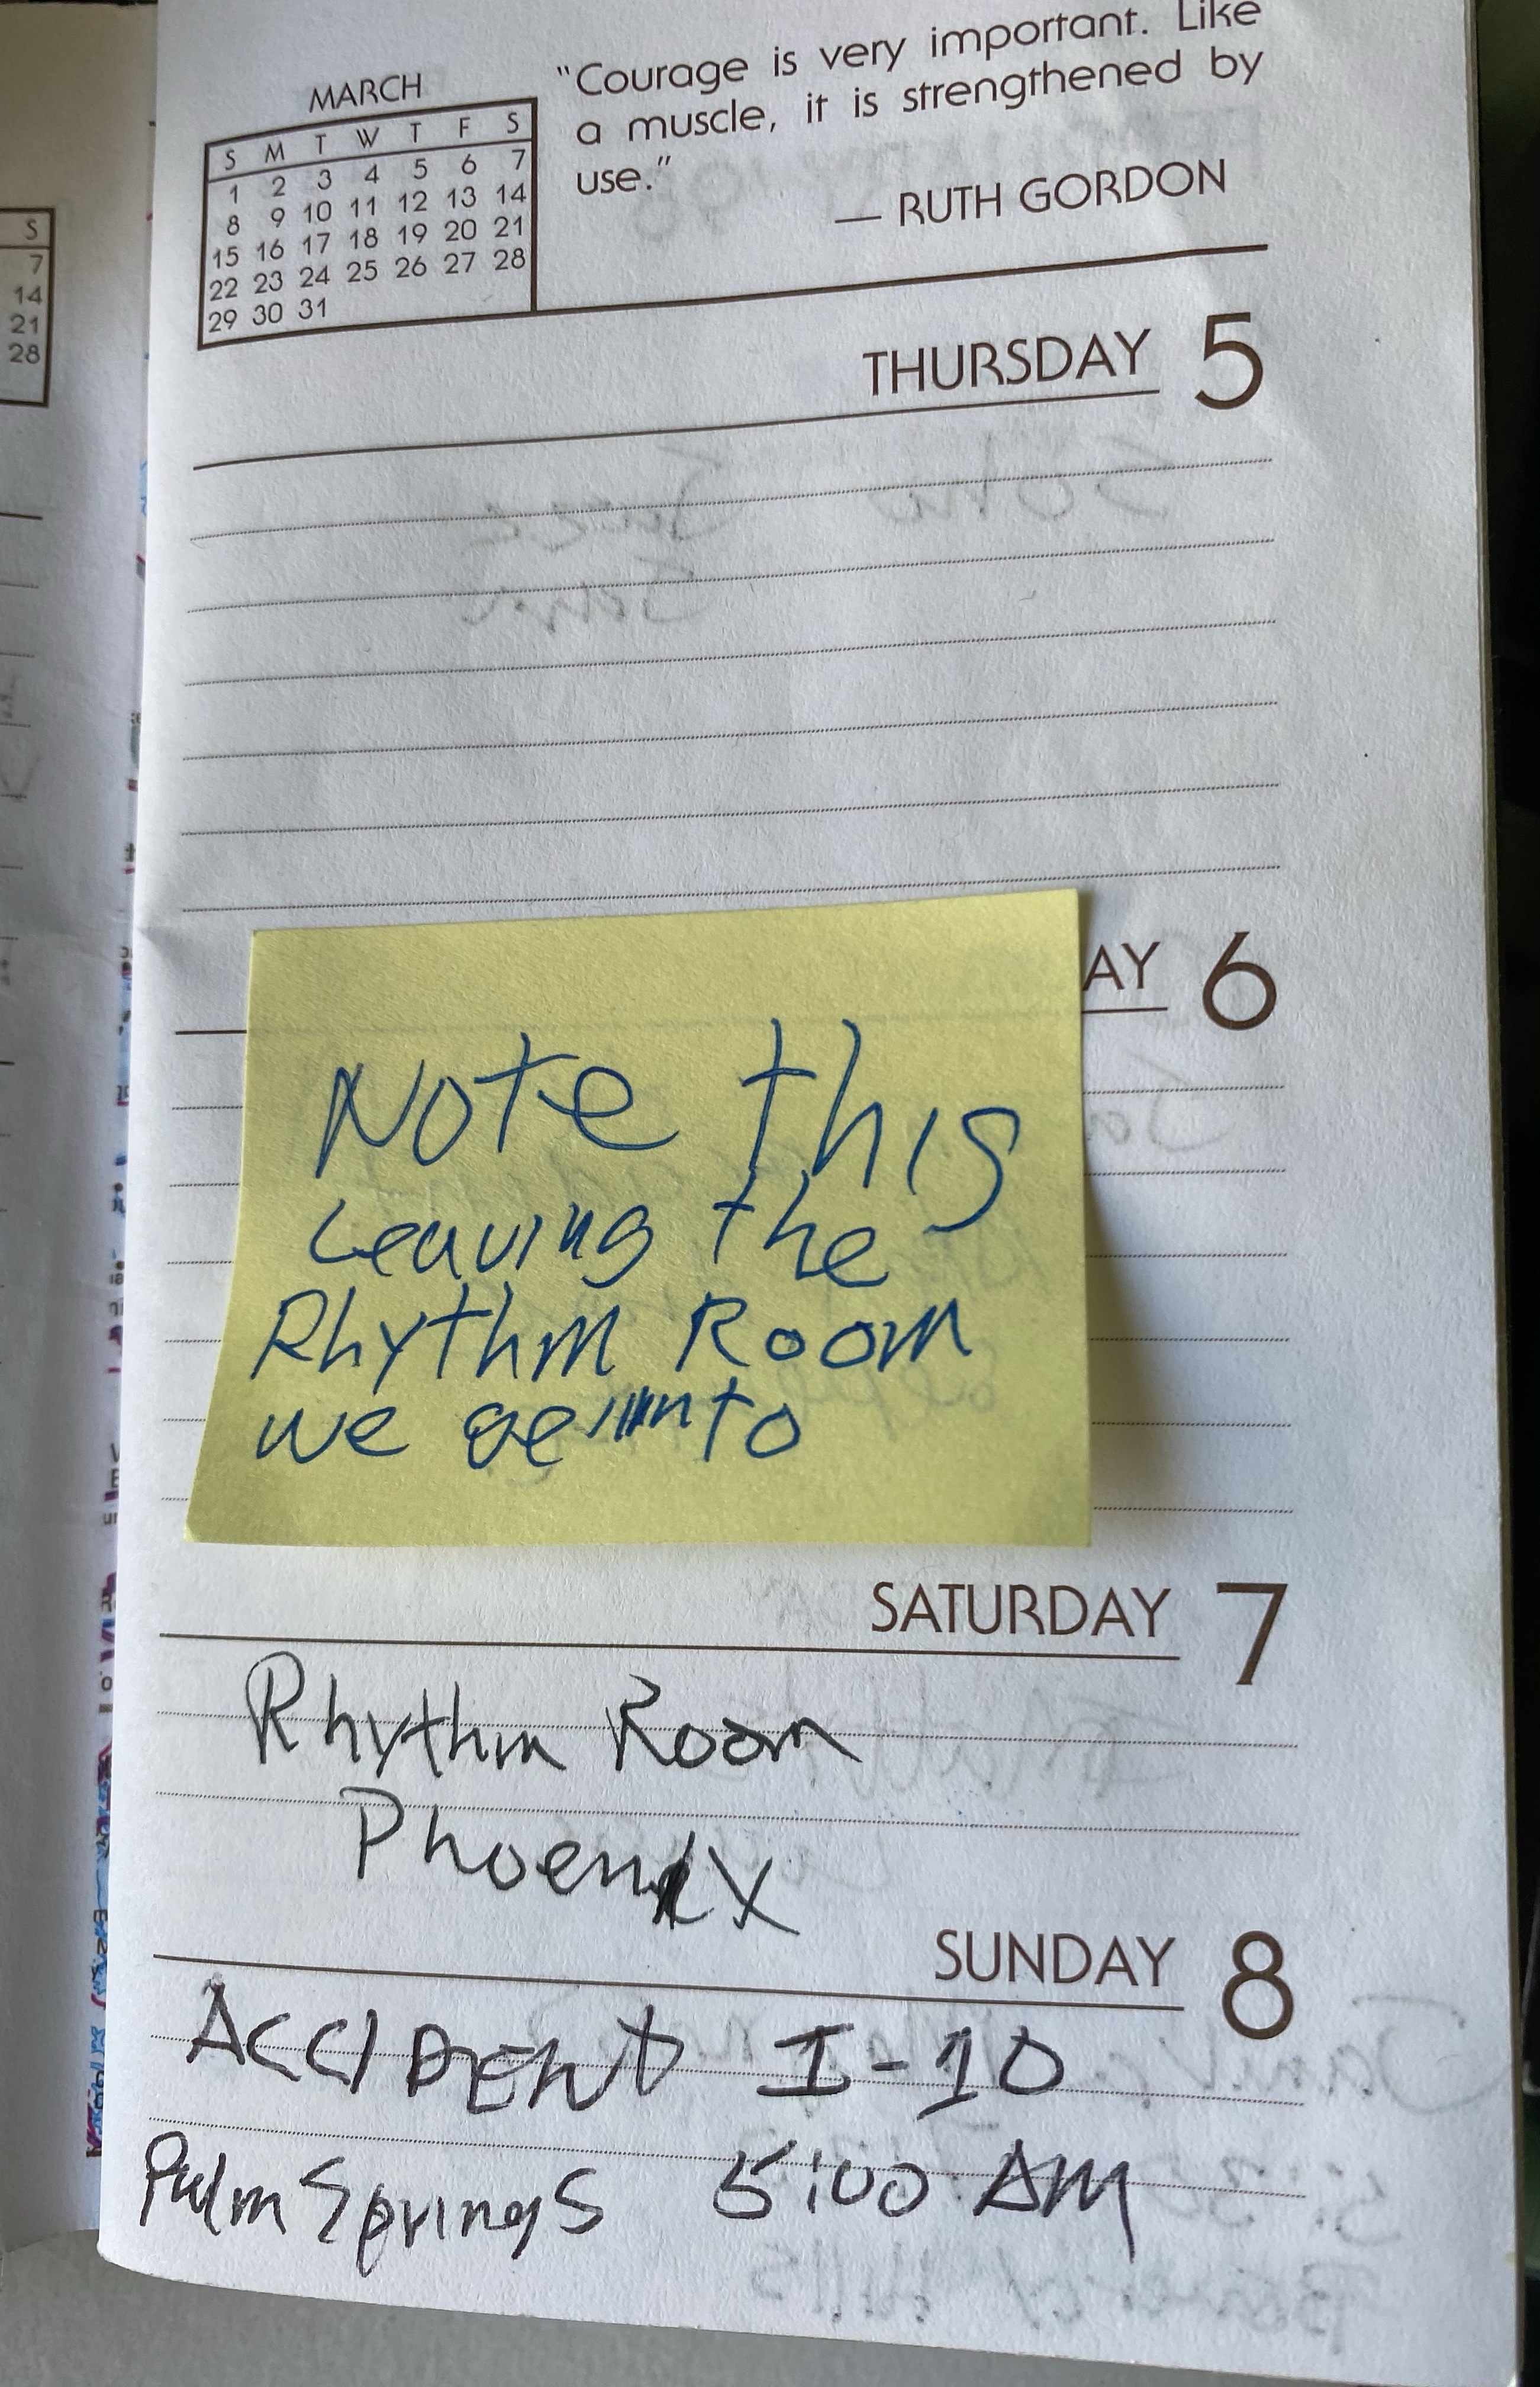 MARCH
S M T W T F S
1 2 3 4 5 6 7
8 9 10 11 12 13 14
15 16 17 18 19 20 21
22 23 24 25 26 27 28
29 30 31
"Courage is very important. Like
a muscle, it is strengthened by
use."
— RUTH GORDON
S
7
14
21
28
THURSDAY 5
AY 6
Note this
Leaving the
Rhythm Room
we to
SATURDAY 7
Rhythm Room
Phoenix
SUNDAY 8
ACCIDENT I-10
Palm Springs 5:00 AM